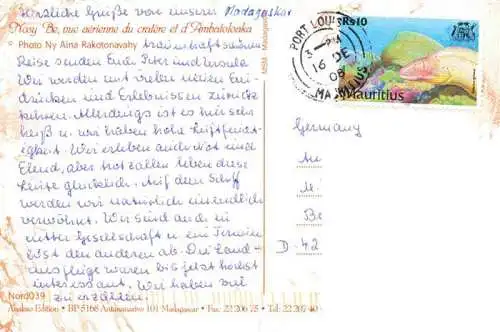 Herzliche Grüße von unserer Madagaskar
Nosy Be, vue aérienne du cratère et d'Ambatoloaka
Photo Ny Aina Rakotonavahy traumhaft schönen
Reise senden Euch Peter und Ursula
Wir werden mit vielen neuen Ein-
drücken und Erlebnissen zurück
kehren. Allerdings ist es mir sehr
heiß u. wir haben hohe Luftfeuch-
tigkeit. Wir erleben auch Not und
Elend, aber trotz allem leben diese
Leute glücklich. Auf dem Schiff
werden wir natürlich unendlich
verwöhnt. Wir sind auch in
netter Gesellschaft u. ein Termin
löst den anderen ab. Die Land-
ausflüge waren bis jetzt höchst
interessant. Wir haben viel
zu erzählen.
Nord039
Analao Edition • BP 5166 Antaninarivo 101 Madagascar • Fax 22 206 75 • Tel 22 205 40
PORT LOUIS
16 DE
08
MAURITIUS
Rs10
Mauritius
Germany
Be
D-42